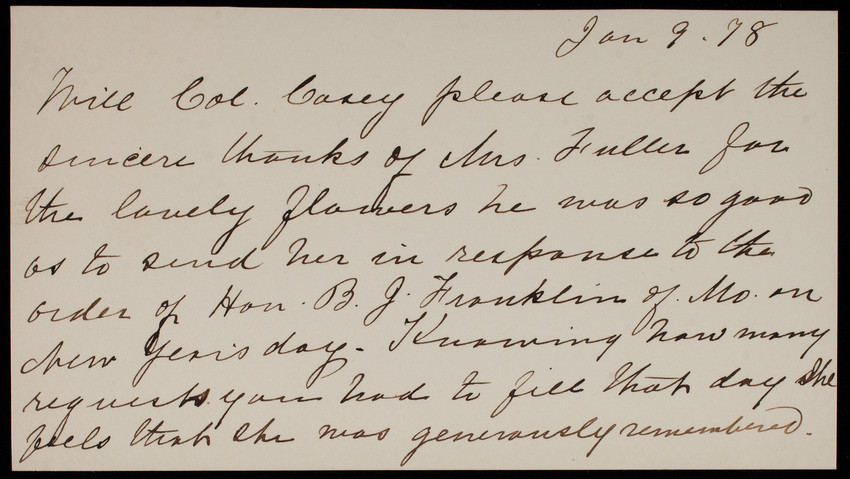 Jan 9. 78
Will Col. Casey please accept the
sincere thanks of Mrs. Fuller for
the lovely flowers he was so good
as to send her in response to the
order of Hon. B. J. Franklin of Mo. on
New Years day - Knowing how many
requests you had to fill that day she
feels that she was generously remembered.